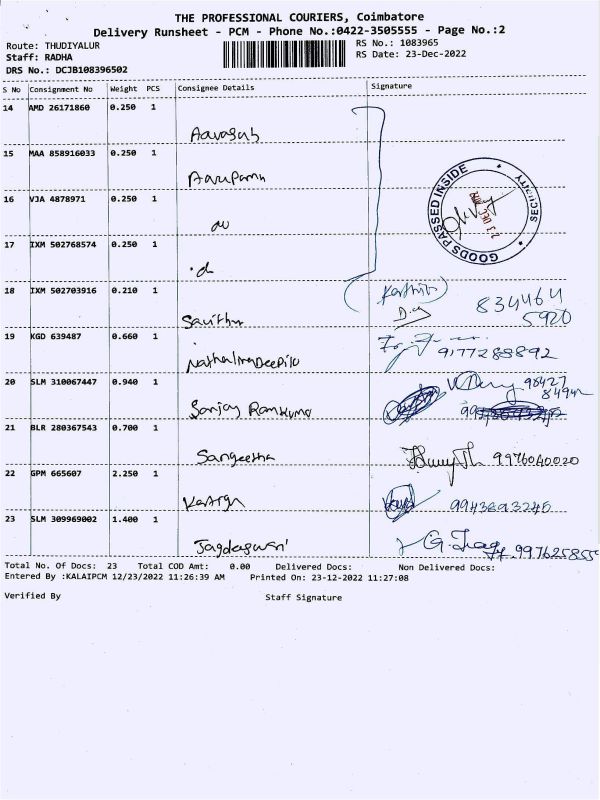 THE PROFESSIONAL COURIERS, Coimbatore
Delivery Runsheet - PCM - Phone No.:0422-3505555 - Page No.:2
Route: THUDIYALUR RS No.: 1083965
Staff: RADHA RS Date: 23-Dec-2022
DRS No.: DCJB108396502
S No Consignment No Weight PCS Consignee Details Signature
14 AMD 26171860 0.250 1
15 MAA 858916033 0.250 1
GOODS PASSED INSIDE SECURITY
23 DEC 2022
16 VJA 4878971 0.250 1
17 IXM 502768574 0.250 1
18 IXM 502703916 0.210 1
834464
5920
Savitha
19 KGD 639487 0.660 1
9177288892
20 SLM 310067447 0.940 1
98427
84942
Sanjay Ramkumar
21 BLR 280367543 0.700 1
Sangeetha 9976040020
22 GPM 665607 2.250 1
9943693240
23 SLM 309969002 1.400 1
Total No. Of Docs: 23 Total COD Amt: 0.00 Delivered Docs: Non Delivered Docs:
Entered By :KALAIPCM 12/23/2022 11:26:39 AM Printed On: 23-12-2022 11:27:08
Verified By Staff Signature